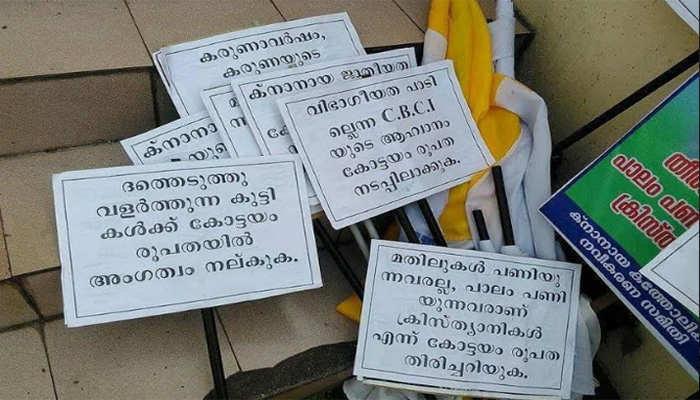 കരുണാവർഷം,
കരുണയുടെ
ക്നാനായ ജാതീയത
ക്നാനാ
വിഭാഗീയത പാടി
ല്ലെന്ന C.B.C.I
യുടെ ആഹ്വാനം
കോട്ടയം രൂപത
നടപ്പിലാക്കുക.
ദത്തെടുത്തു
വളർത്തുന്ന കുട്ടി
കൾക്ക് കോട്ടയം
രൂപതയിൽ
അംഗത്വം നല്കുക.
മതിലുകൾ പണിയു
ന്നവരല്ല, പാലം പണി
യുന്നവരാണ്
ക്രിസ്ത്യാനികൾ
എന്ന് കോട്ടയം രൂപത
തിരിച്ചറിയുക.
പാലം പണി
ക്രിസ്
ക്നാനായ കത്തോലിക്
നവീകരണ സമിതി